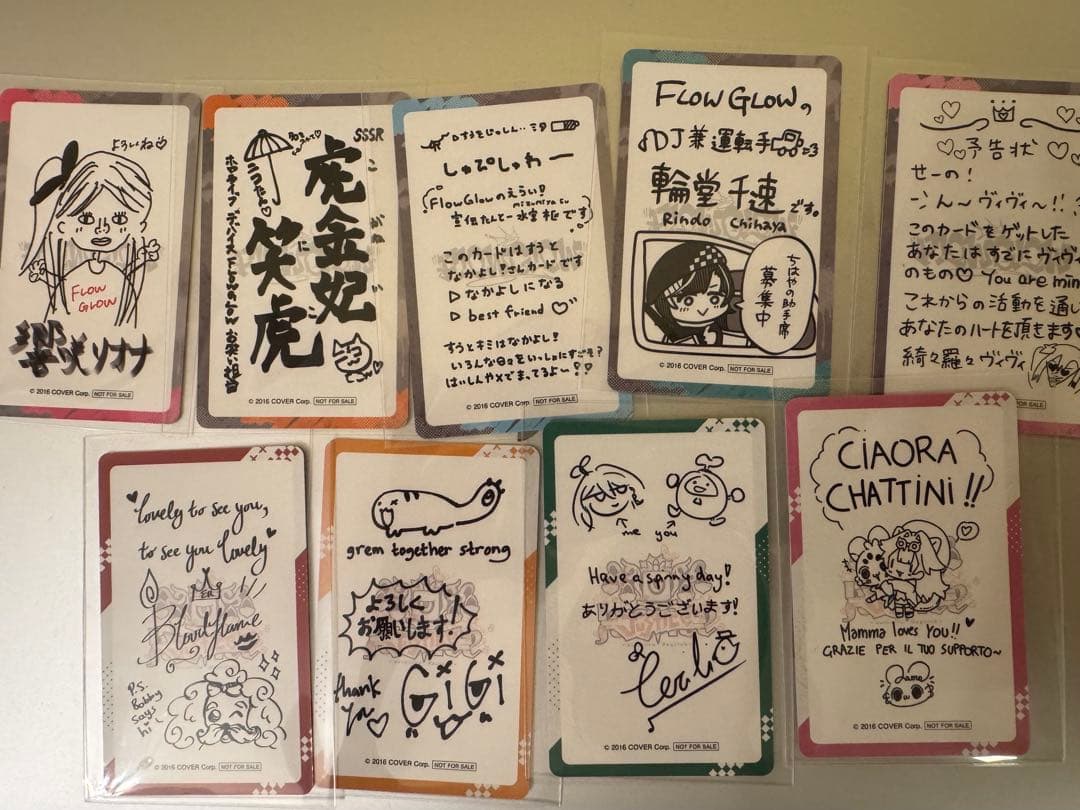 よろしいね
FLOW
GLOW
響咲リオナ
© 2016 COVER Corp. NOT FOR SALE
SSSR
虎金妃
笑虎
こがね
にこ
ホロライブ デバイス FLOW GLOW お笑い担当
© 2016 COVER Corp. NOT FOR SALE
しゅぴしゅわー
FlowGlowのえらい!
mizumiya su
宣伝たんとー水宮枢です
このカードはすうと
なかよし!さんカードです
▷なかよしになる
▷best friend♡
すうとキミはなかよし!
いろんな日々をいっしょにすごそ?
はいしんやXでまってるよ〜!
© 2016 COVER Corp. NOT FOR SALE
FLOW GLOWの
DJ兼運転手
輪堂 千速です。
Rindo Chihaya
ちはやの助手席
募集中
© 2016 COVER Corp. NOT FOR SALE
予告状
せーの!
ん〜ヴィヴィ〜!!
このカードをゲットした
あなたはすでにヴィヴィ
のもの♡ You are mine
これからの活動を通し
あなたのハートを頂きます
綺々羅々ヴィヴィ
NOT FOR SALE
Lovely to see you,
to see you lovely
ER
Bloodflame
P.S.
Bobby
says
hi
© 2016 COVER Corp. NOT FOR SALE
grem together strong
よろしく
お願いします!
thank
ya♡
GiGi
© 2016 COVER Corp. NOT FOR SALE
me you
Have a spinny day!
ありがとうございます!
Cecilia
© 2016 COVER Corp. NOT FOR SALE
CIAORA
CHATTINI!!
Mamma loves You!!
GRAZIE PER IL TUO SUPPORTO~
© 2016 COVER Corp. NOT FOR SALE